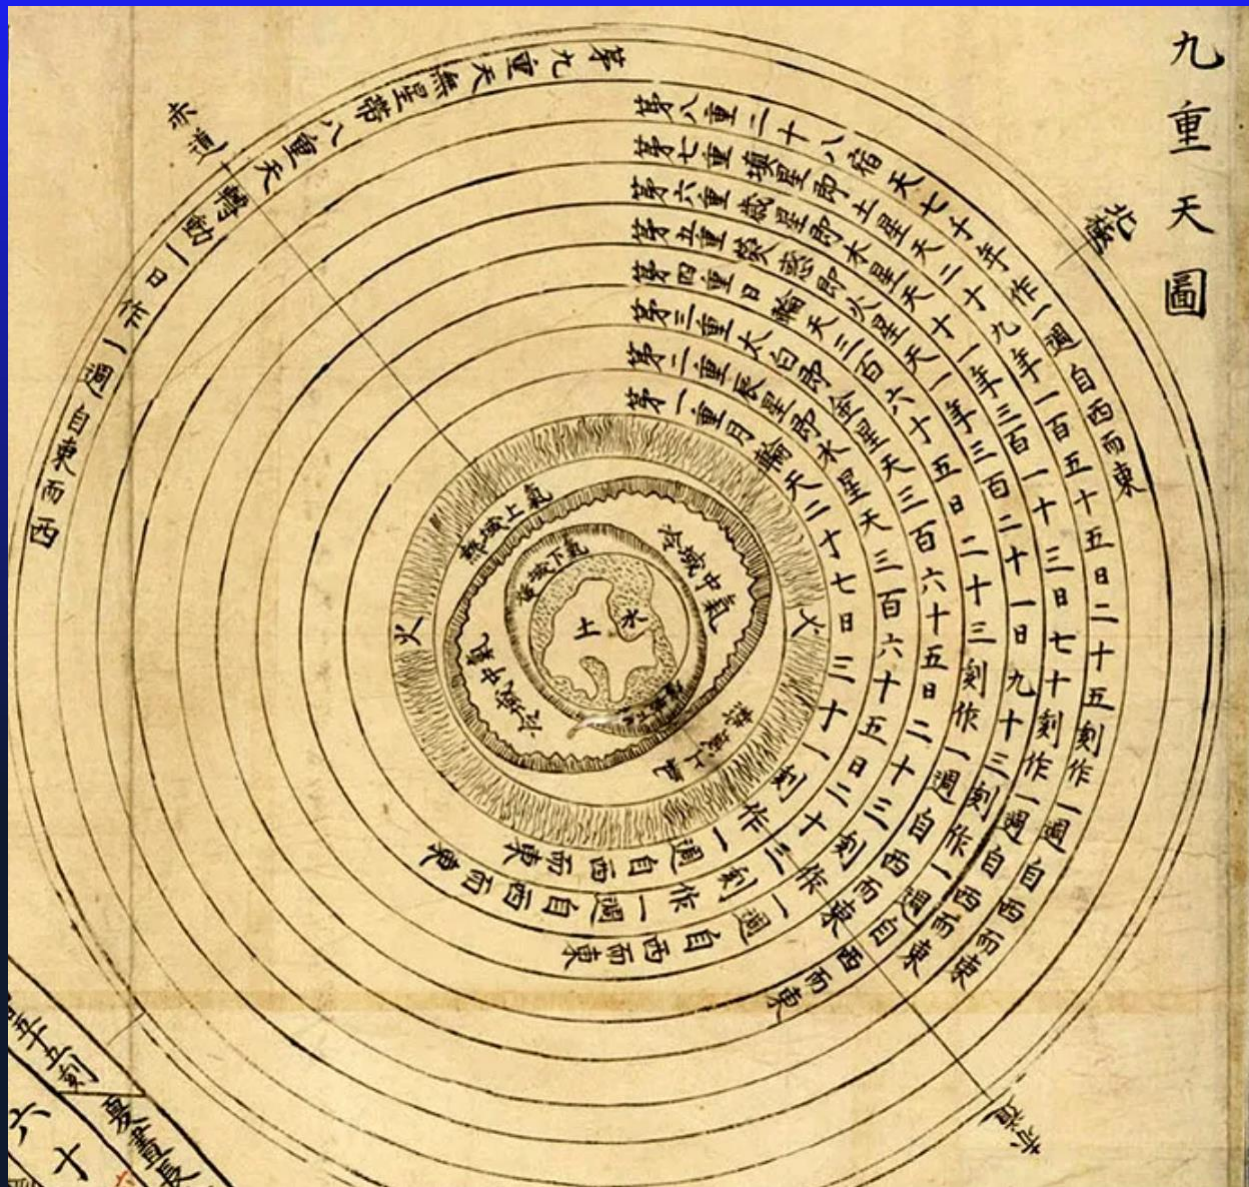 九重天圖
赤道
北極
第九重天無星帶八重天轉動一日作一週自東而西
第八重二十八宿天七千年作一週自西而東
第七重填星即土星天二十九年一百五十五日二十五刻作一週自西而東
第六重歲星即木星天十一年三百一十三日七十刻作一週自西而東
第五重熒惑即火星天一年三百二十一日九十三刻作一週自西而東
第四重日輪天三百六十五日二十三刻作一週自西而東
第三重太白即金星天三百六十五日二十三刻作一週自西而東
第二重辰星即水星天三百六十五日二十三刻作一週自西而東
第一重月輪天二十七日三十一刻作一週自西而東
火
火
熱域上氣
冷域中氣
冷域中氣
熱域上氣
域下氣
土
水
赤道
五刻
夏晝長
六十